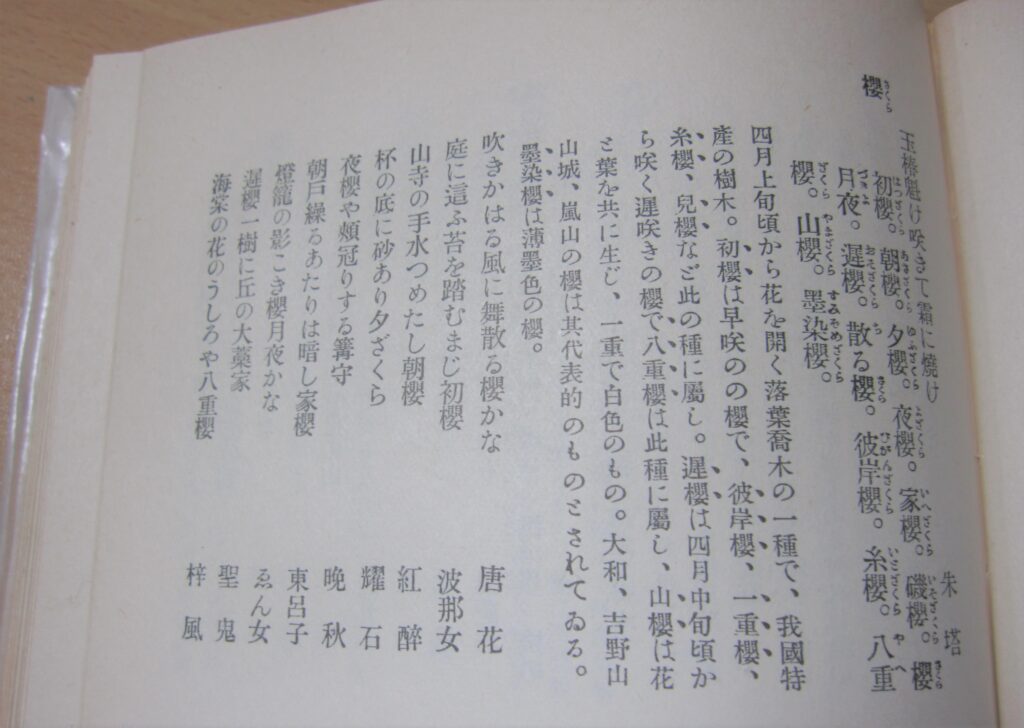 玉椿魁け咲きて霜に燒け　朱塔
櫻　初櫻。朝櫻。夕櫻。夜櫻。家櫻。磯櫻。櫻
月夜。遲櫻。散る櫻。彼岸櫻。糸櫻。八重
櫻。山櫻。墨染櫻。
四月上旬頃から花を開く落葉喬木の一種で、我國特
產の樹木。初櫻は早咲のの櫻で、彼岸櫻、一重櫻、
糸櫻、兒櫻など此の種に屬し。遲櫻は四月中旬頃か
ら咲く遲咲きの櫻で八重櫻は此種に屬し、山櫻は花
と葉を共に生じ、一重で白色のもの。大和、吉野山
山城、嵐山の櫻は其代表的のものとされてゐる。
墨染櫻は薄墨色の櫻。
吹きかはる風に舞散る櫻かな　唐花
庭に這ふ苔を踏むまじ初櫻　波那女
山寺の手水つめたし朝櫻　紅醉
杯の底に砂あり夕ざくら　耀石
夜櫻や頰冠りする篝守　晩秋
朝戸繰るあたりは暗し家櫻　東呂子
燈籠の影こき櫻月夜かな　ゑん女
遲櫻一樹に丘の大藁家　聖鬼
海棠の花のうしろや八重櫻　梓風